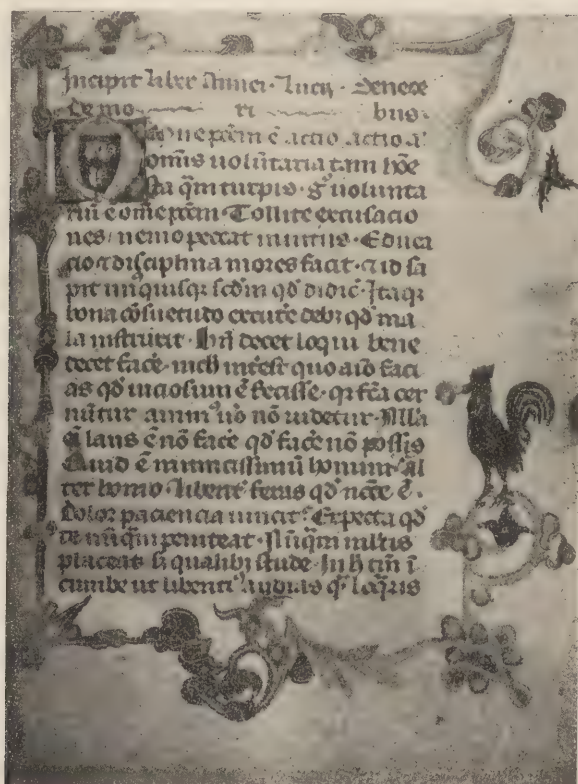 Incipit liber Annei · Lucij · Senece
de mo ri bus ·
Omne pctm̄ ē actio actio aͥ
omīs uolūtaria tam hōe
sta qm̄ turpis · gͦ uolunta
riū ē ome pctm̄ Tollite excusacio
nes / nemo peccat inuitus · Educa
cio ⁊ disciplina mores facit · ⁊ id sa
pit unqͥsqꝫ scd̄m qd̄ didic̄ · Itaqꝫ
bona cōsuetudo excute debꝫ qd̄ ma
la instruxit · decet loqui bene
decet face · nich intest quo aīo faci
as qd̄ uiciosum ē fecisse · qꝛ fc̄a cer
nūtur animꝰ uͦo nō uidetur · Nulla
ē laus ē nō face qd̄ face nō possis
Quid ē inimicissimū homini al
ter homo · libentʼ feras qd̄ ncc̄e ē ·
Dolor paciencia uincitʼ Expecta qd̄
te nūqm̄ peniteat · Nūqm̄ mltis
placeas stude · In h̄ tm̄ ī
cumbe ut libentiʼ audias qͣ loqͣris